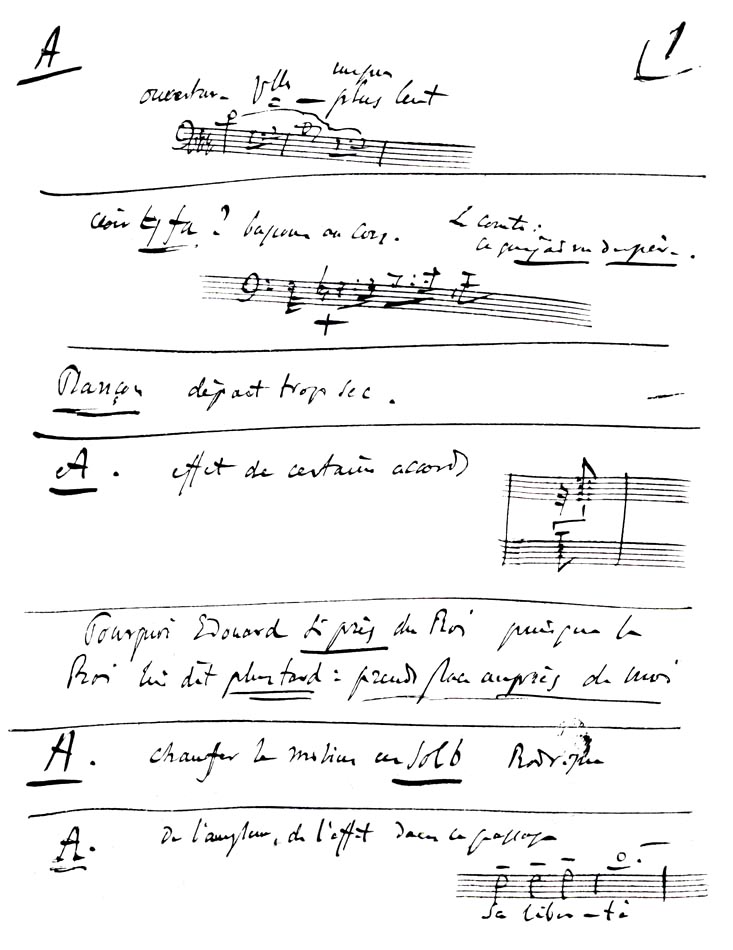 A 1
ouverture Vlle
plus lent
voir ♮ fa ? bassons ou cors. Le comte :
ce que j'ai su du père.
Plançon départ trop sec.
A. effet de certains accords
Pourquoi Edouard si près du Roi puisque le
Roi lui dit plus tard : prends place auprès de moi
A. chauffer le motive en Sol b Rodrigue
A. De l'ampleur, de l'effet dans ce passage
sa liber-té